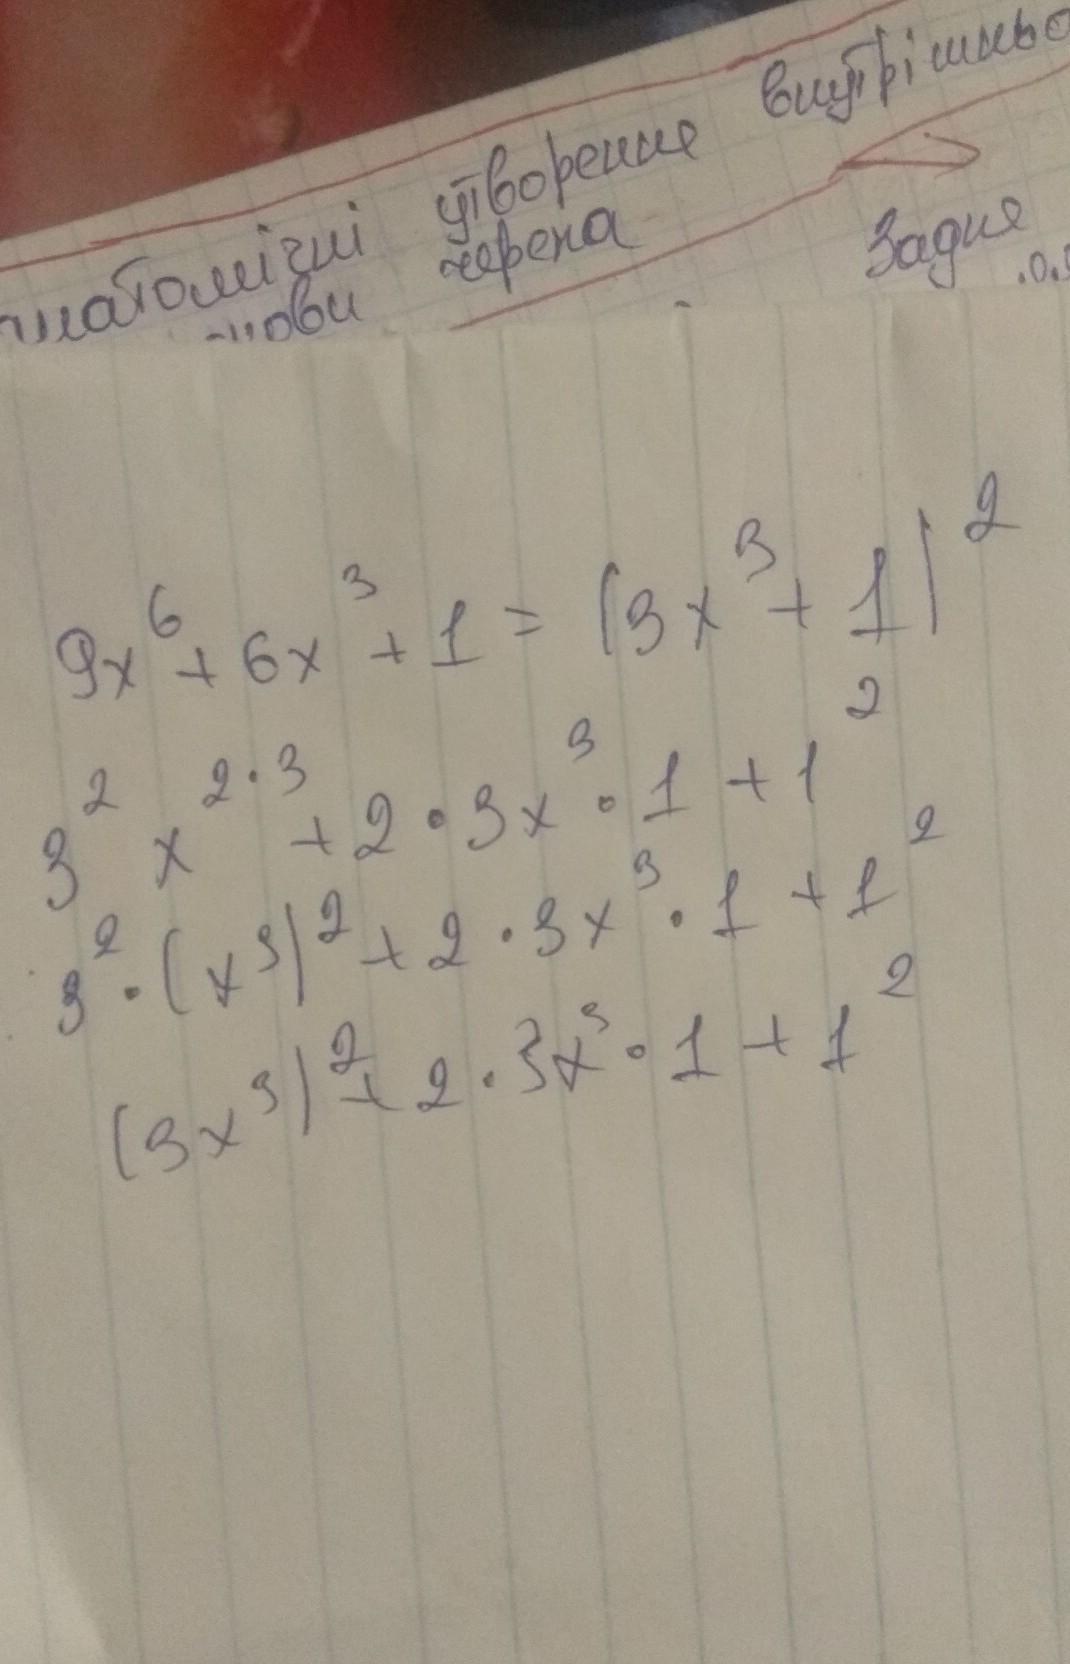 утворення внутрішньо
черепа
Задня
9x⁶ + 6x³ + 1 = (3x³ + 1)²
3² x²·³ + 2 · 3x³ · 1 + 1²
3² · (x³)² + 2 · 3x³ · 1 + 1²
(3x³)² + 2 · 3x³ · 1 + 1²